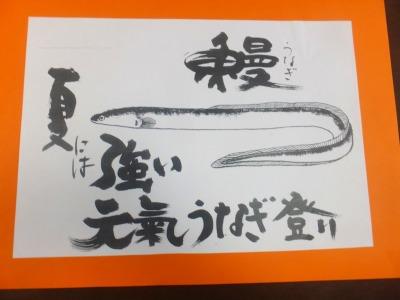 鰻
うなぎ
夏には
強い
元氣うなぎ登り